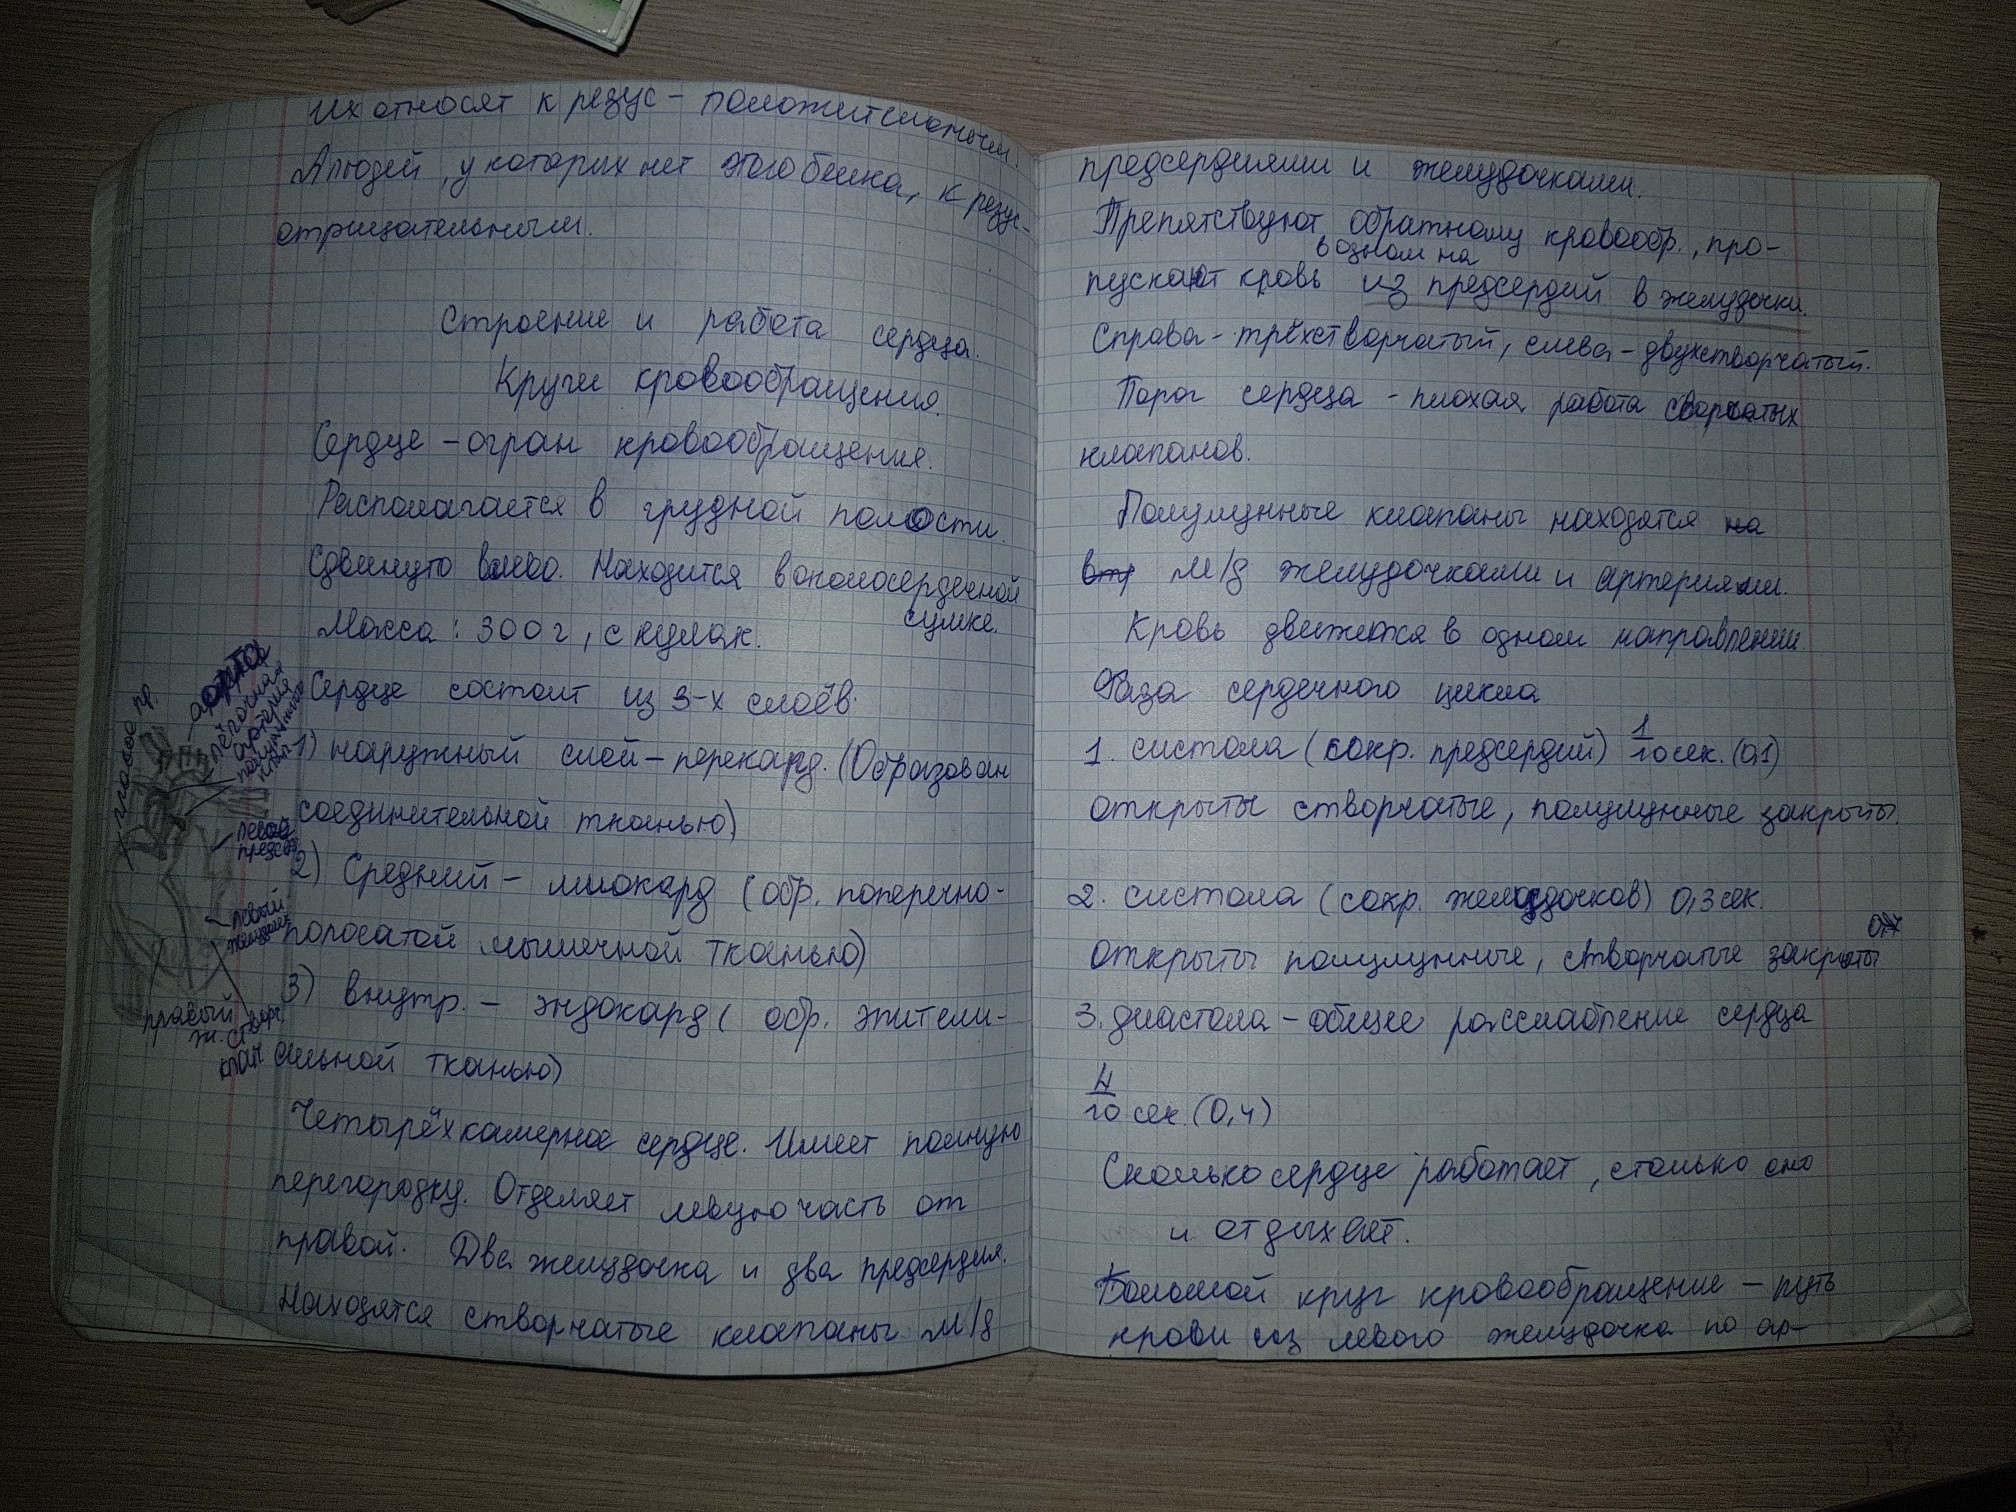 их относят к резус - положительным.
А людей, у которых нет этого белка, к резус-
отрицательным.
Строение и работа сердца.
Круги кровообращения.
Сердце - огран кровообращения.
Располагается в грудной полости.
Сдвинуто влево. Находится в околосердечной
сумке.
Масса: 300 г, с кулак.
Сердце состоит из 3-х слоёв:
1) наружный слой - перекард. (Образован
соединительной тканью)
2) Средний - миокард (обр. поперечно-
полосатой мышечной тканью)
3) внутр. - эндокард ( обр. эпители-
альной тканью)
Четырёхкамерное сердце. Имеет полную
перегородку. Отделяет левую часть от
правой. Два желудочка и два предсердия.
Находятся створчатые клапаны м/д
правое пр.
аорта
лёгочная
артерия
полулунный
клап.
левое
предсер
левый
желудочек
правый
ж. створч.
клап.
предсердиями и желудочками.
Препятствуют обратному кровообр., про-
в одном на
пускают кровь из предсердий в желудочки.
Справа - трёхстворчатый, слева - двухстворчатый.
Порог сердца - плохая работа створчатых
клапанов.
Полулунные клапаны находятся на
втр м/д желудочками и артериями.
Кровь движется в одном направлении.
Фаза сердечного цикла
1. систола (сокр. предсердий) 1/10 сек. (0,1)
открыты створчатые, полулунные закрыты.
2. систола (сокр. желудочков) 0,3 сек.
открыты полулунные, створчатые закрыты
3. диастола - общее расслабление сердца
4/10 сек. (0,4)
Сколько сердце работает, столько оно
и отдыхает.
Большой круг кровообращение - путь
крови из левого желудочка по ар-